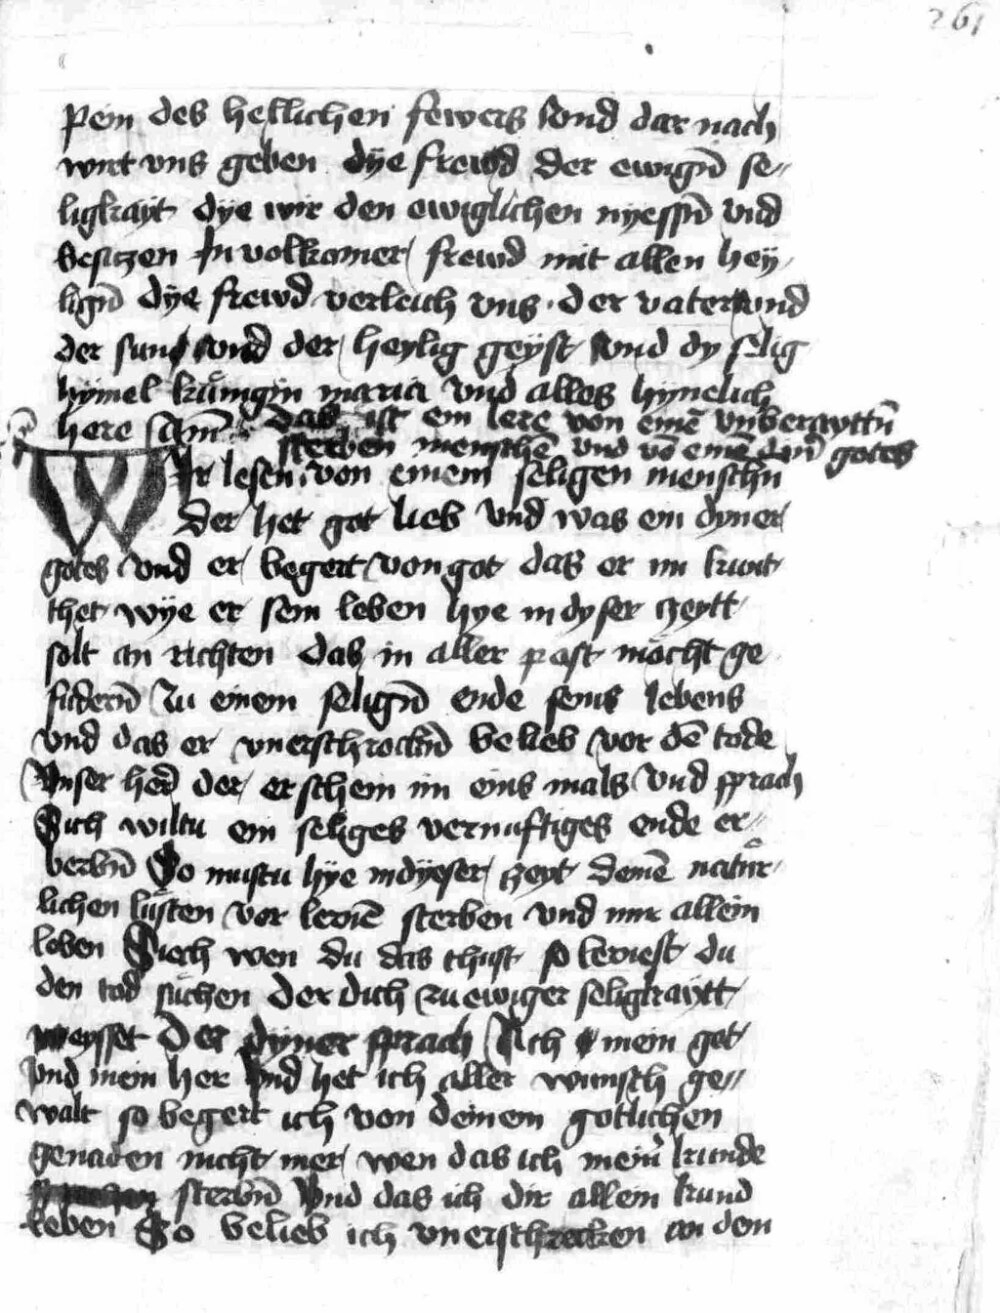 261
pein des hellichen fewers vnd dar nach
wirt vns geben dÿe frewd der ewign̄ se„
ligkayt dÿe wir den ewiglichen nyessn̄ vnd
besitzen In volkamer frewd mit allen hey„
lign̄ dÿe frewd verleich vns der vater vnd
der sun vnd der heylig geyst vnd dy selig
hymel kungin maria vnd alles hymelich
here Am̄ das ist ein lere von einē vnberayttn̄
sterben menschē vnd vō einē din̄ gotes
Wir lesen von einem seligen menschn
Der het got lieb vnd was ein dyner
gotes vnd er begert von got das er im kunt
thet wÿe er sein leben hye in dyser zeytt
solt an richten das in aller past möcht ge
fudern̄ zu einem selign̄ ende seins lebens
vnd das er vnerschrockn̄ belieb vor dē tode
Vnser her̄ der erschein im eins mals vnd sprach
Sich wiltu ein seliges vernuftiges ende er„
berbn̄ So mustu hÿe in dyeser zeyt deinē natůr„
lichen lůsten vor lernē sterben vnd mir allein
leben Siech wen du das thust so lernest du
den tod suchen der dich zu ewiger seligkaytt
weysset Der dyner sprach Ach mein got
vnd mein her Vnd het ich aller wunsch ge„
walt so beger ich von deinem gotlichen
genaden nicht mer wen das ich mein kunde
sterbn̄ Vnd das ich dir allein kund
leben So belieb ich vnerschrecken an dem